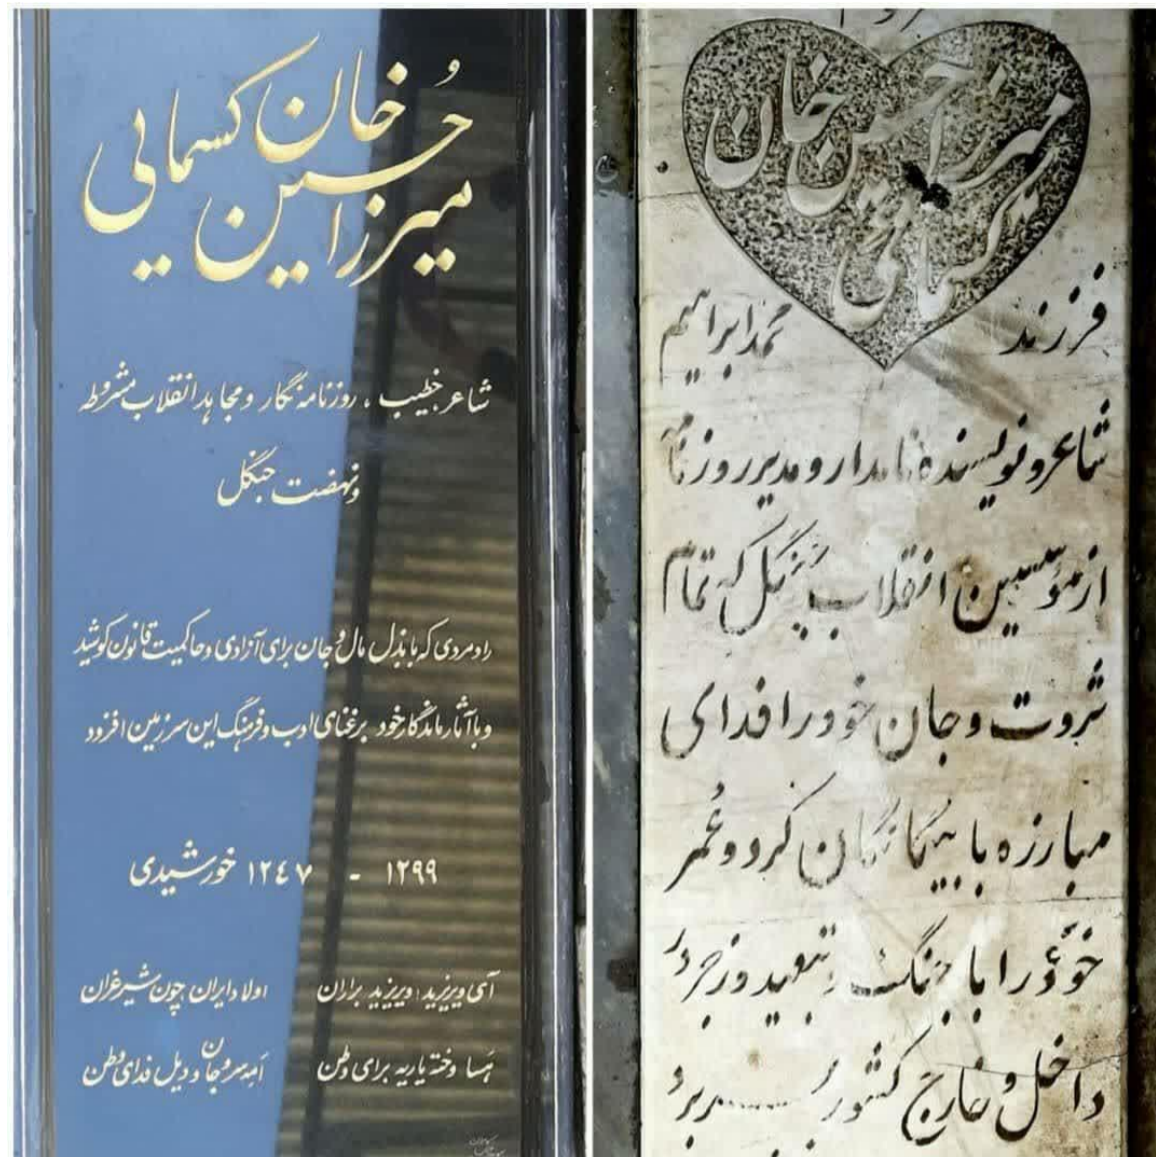 میرزا حُسین خان کسمایی
شاعر، خطیب، روزنامه نگار و مجاهد انقلاب مشروطه
و نهضت جنگل
رادمردی که با بذل مال و جان برای آزادی و حاکمیت قانون کوشید
و با آثار ماندگار خود بر غنای ادب و فرهنگ این سرزمین افزود
۱۲۹۹ - ۱۲٤۷ خورشیدی
آی ویریزید، ویریزید براران اولاد ایران چون شیر غران
هسا وخته یاریه برای وطن امه سر و جان و دیل فدای وطن
میرزا حسین خان
کسمائی
فرزند محمد ابراهیم
شاعر و نویسنده نامدار و مدیر روزنامه
از مؤسسین انقلاب جنگل که تمام
ثروت و جان خود را فدای
مبارزه با بیگانگان کرد و عُمر
خود را با جنگ و تبعید و زجر در
داخل و خارج کشور بسر برد